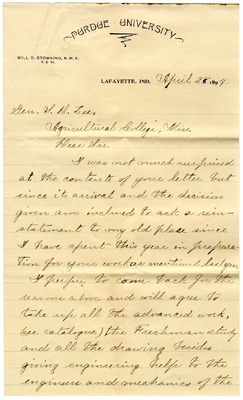 PURDUE UNIVERSITY
WILL D. BROWNING, B.M.E.
LAFAYETTE, IND. April 28 1899
Gen. S. D. Lee,
Agricultural College, Miss.
Dear Sir
I was not much surprised
at the contents of your letter but
since its arrival and the decision
given am inclined to ask a rein-
statement to my old place since
I have spent this year in prepara-
tion for your work as mentioned last year
I prefer to come back for the
reasons above and will agree to
take up all the advanced work,
(see catalogue) the Freshman study
and all the drawing besides
giving engineering help to the
engineers and mechanics of the